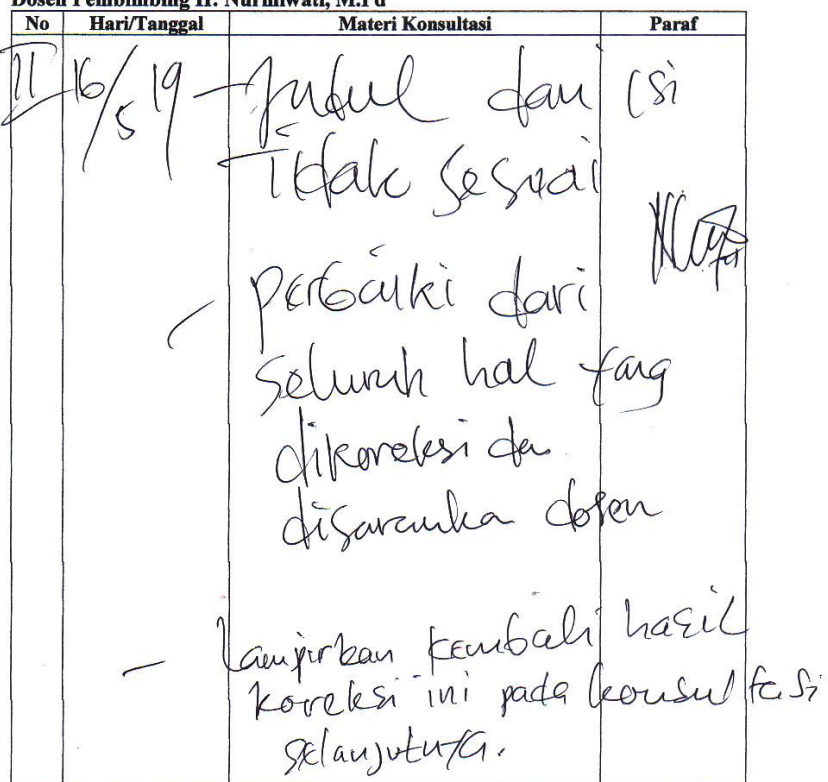 Dosen Pembimbing II: Nurmiwati, M.Pd
No Hari/Tanggal Materi Konsultasi Paraf
II 16/5 19 - Judul dan isi
Tidak sesuai
- perbaiki dari
seluruh hal yang
dikoreksi da
disaranka dosen
- Lampirkan kembali hasil
koreksi ini pada konsultasi
selanjutnya.